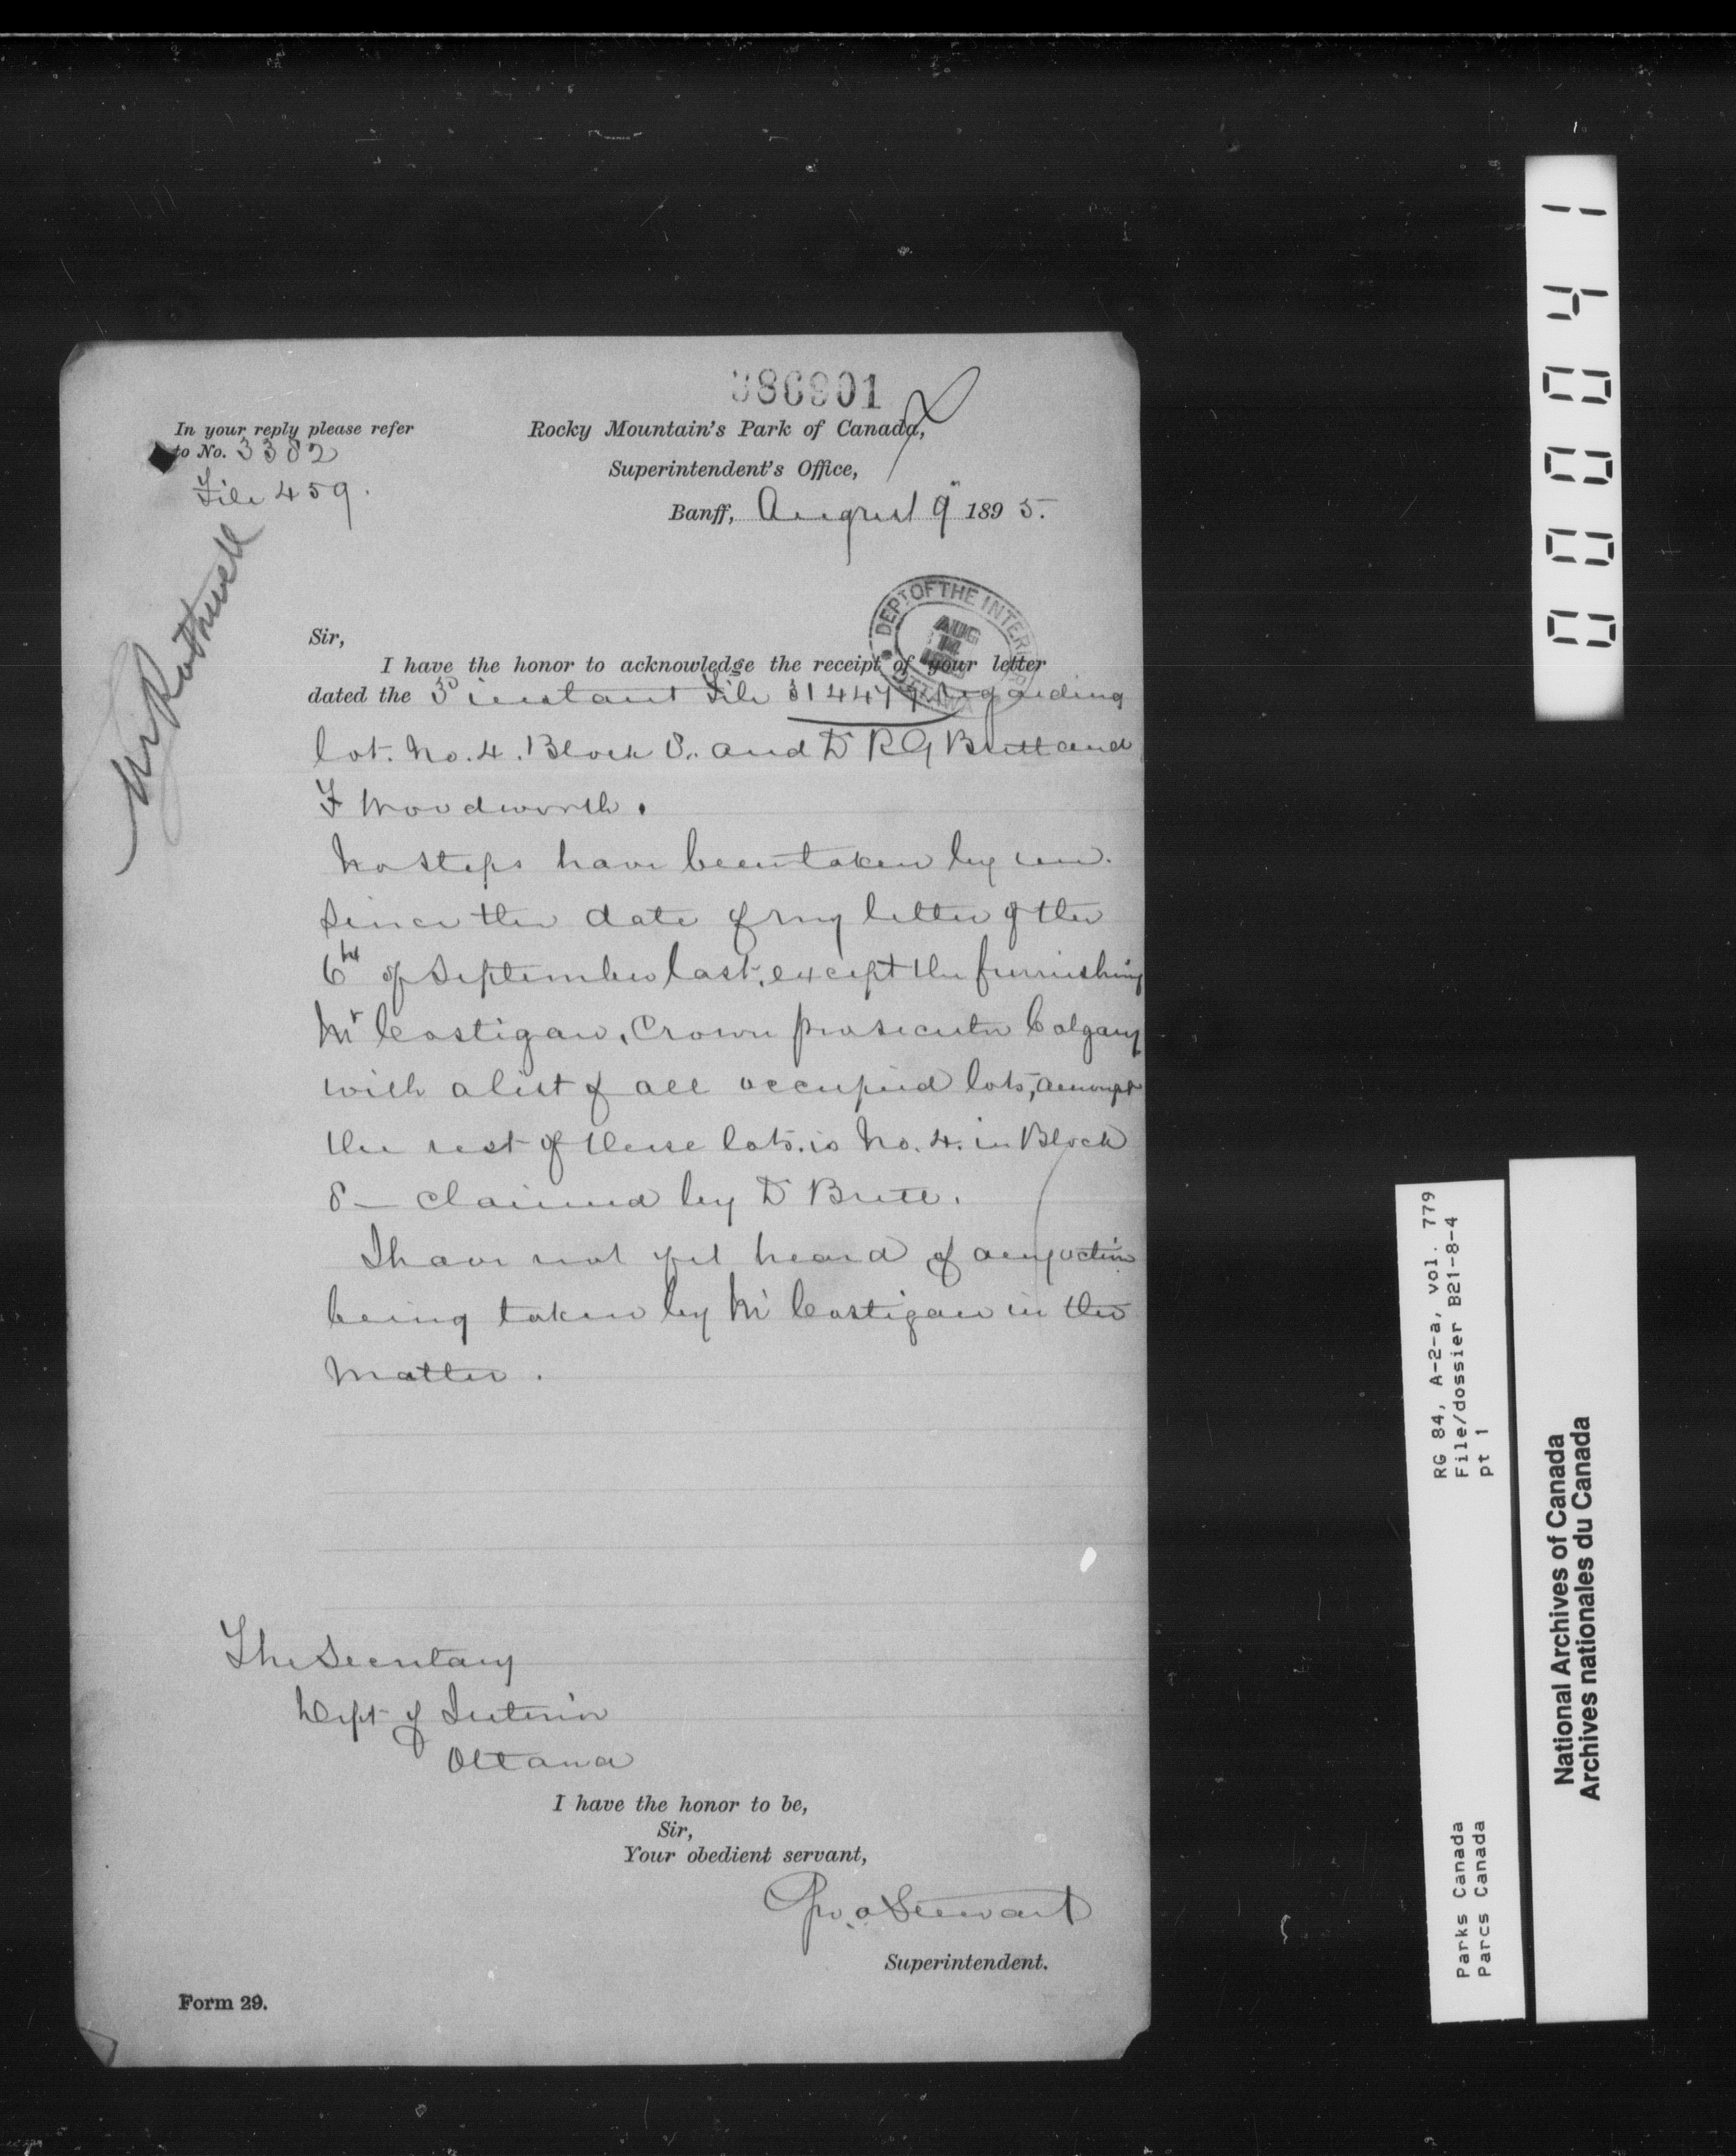 386901
In your reply please refer
to No. 3382
File 459.
Rocky Mountain's Park of Canada,
Superintendent's Office,
Banff, August 9" 1895.
Mr Rothwell
DEPT OF THE INTERIOR
AUG 14 1895
OTTAWA
Sir,
I have the honor to acknowledge the receipt of your letter
dated the 3d instant File 314479 regarding
lot. No. 4. Block 8. and Dr R G Brett and
F Woodworth.
No steps have been taken by me.
Since the date of my letter of the
6th of September last, except the furnishing
Mr Costigan, Crown prosecutor Calgary
with a list of all occupied lots, amongst
the rest of these lots. is No. 4. in Block
8 — claimed by Dr Brett.
I have not yet heard of any action
being taken by Mr Costigan in the
matter.
The Secretary
Dept of Interior
Ottawa
I have the honor to be,
Sir,
Your obedient servant,
Geo. A Stewart
Superintendent.
Form 29.
000041
RG 84, A-2-a, vol. 779
File/dossier B21-8-4
pt 1
Parks Canada
Parcs Canada
National Archives of Canada
Archives nationales du Canada